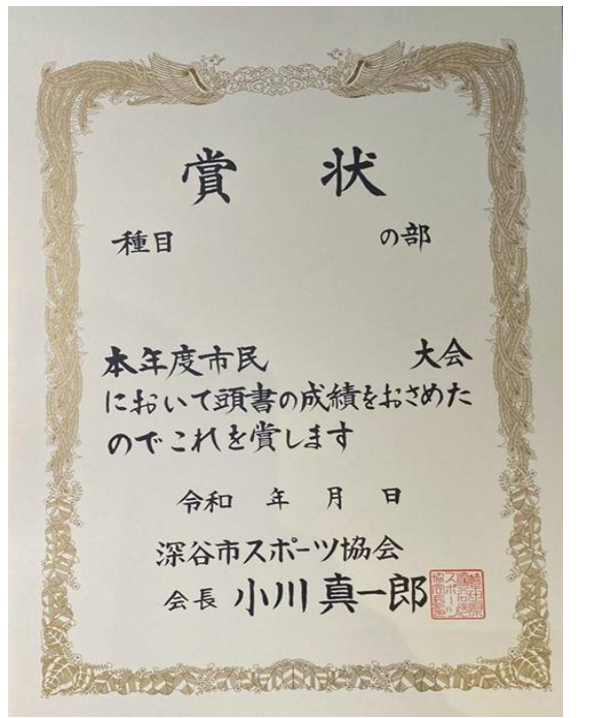 賞 状
種目 の部
本年度市民 大会
において頭書の成績をおさめた
のでこれを賞します
令和 年 月 日
深谷市スポーツ協会
会長 小川 真一郎